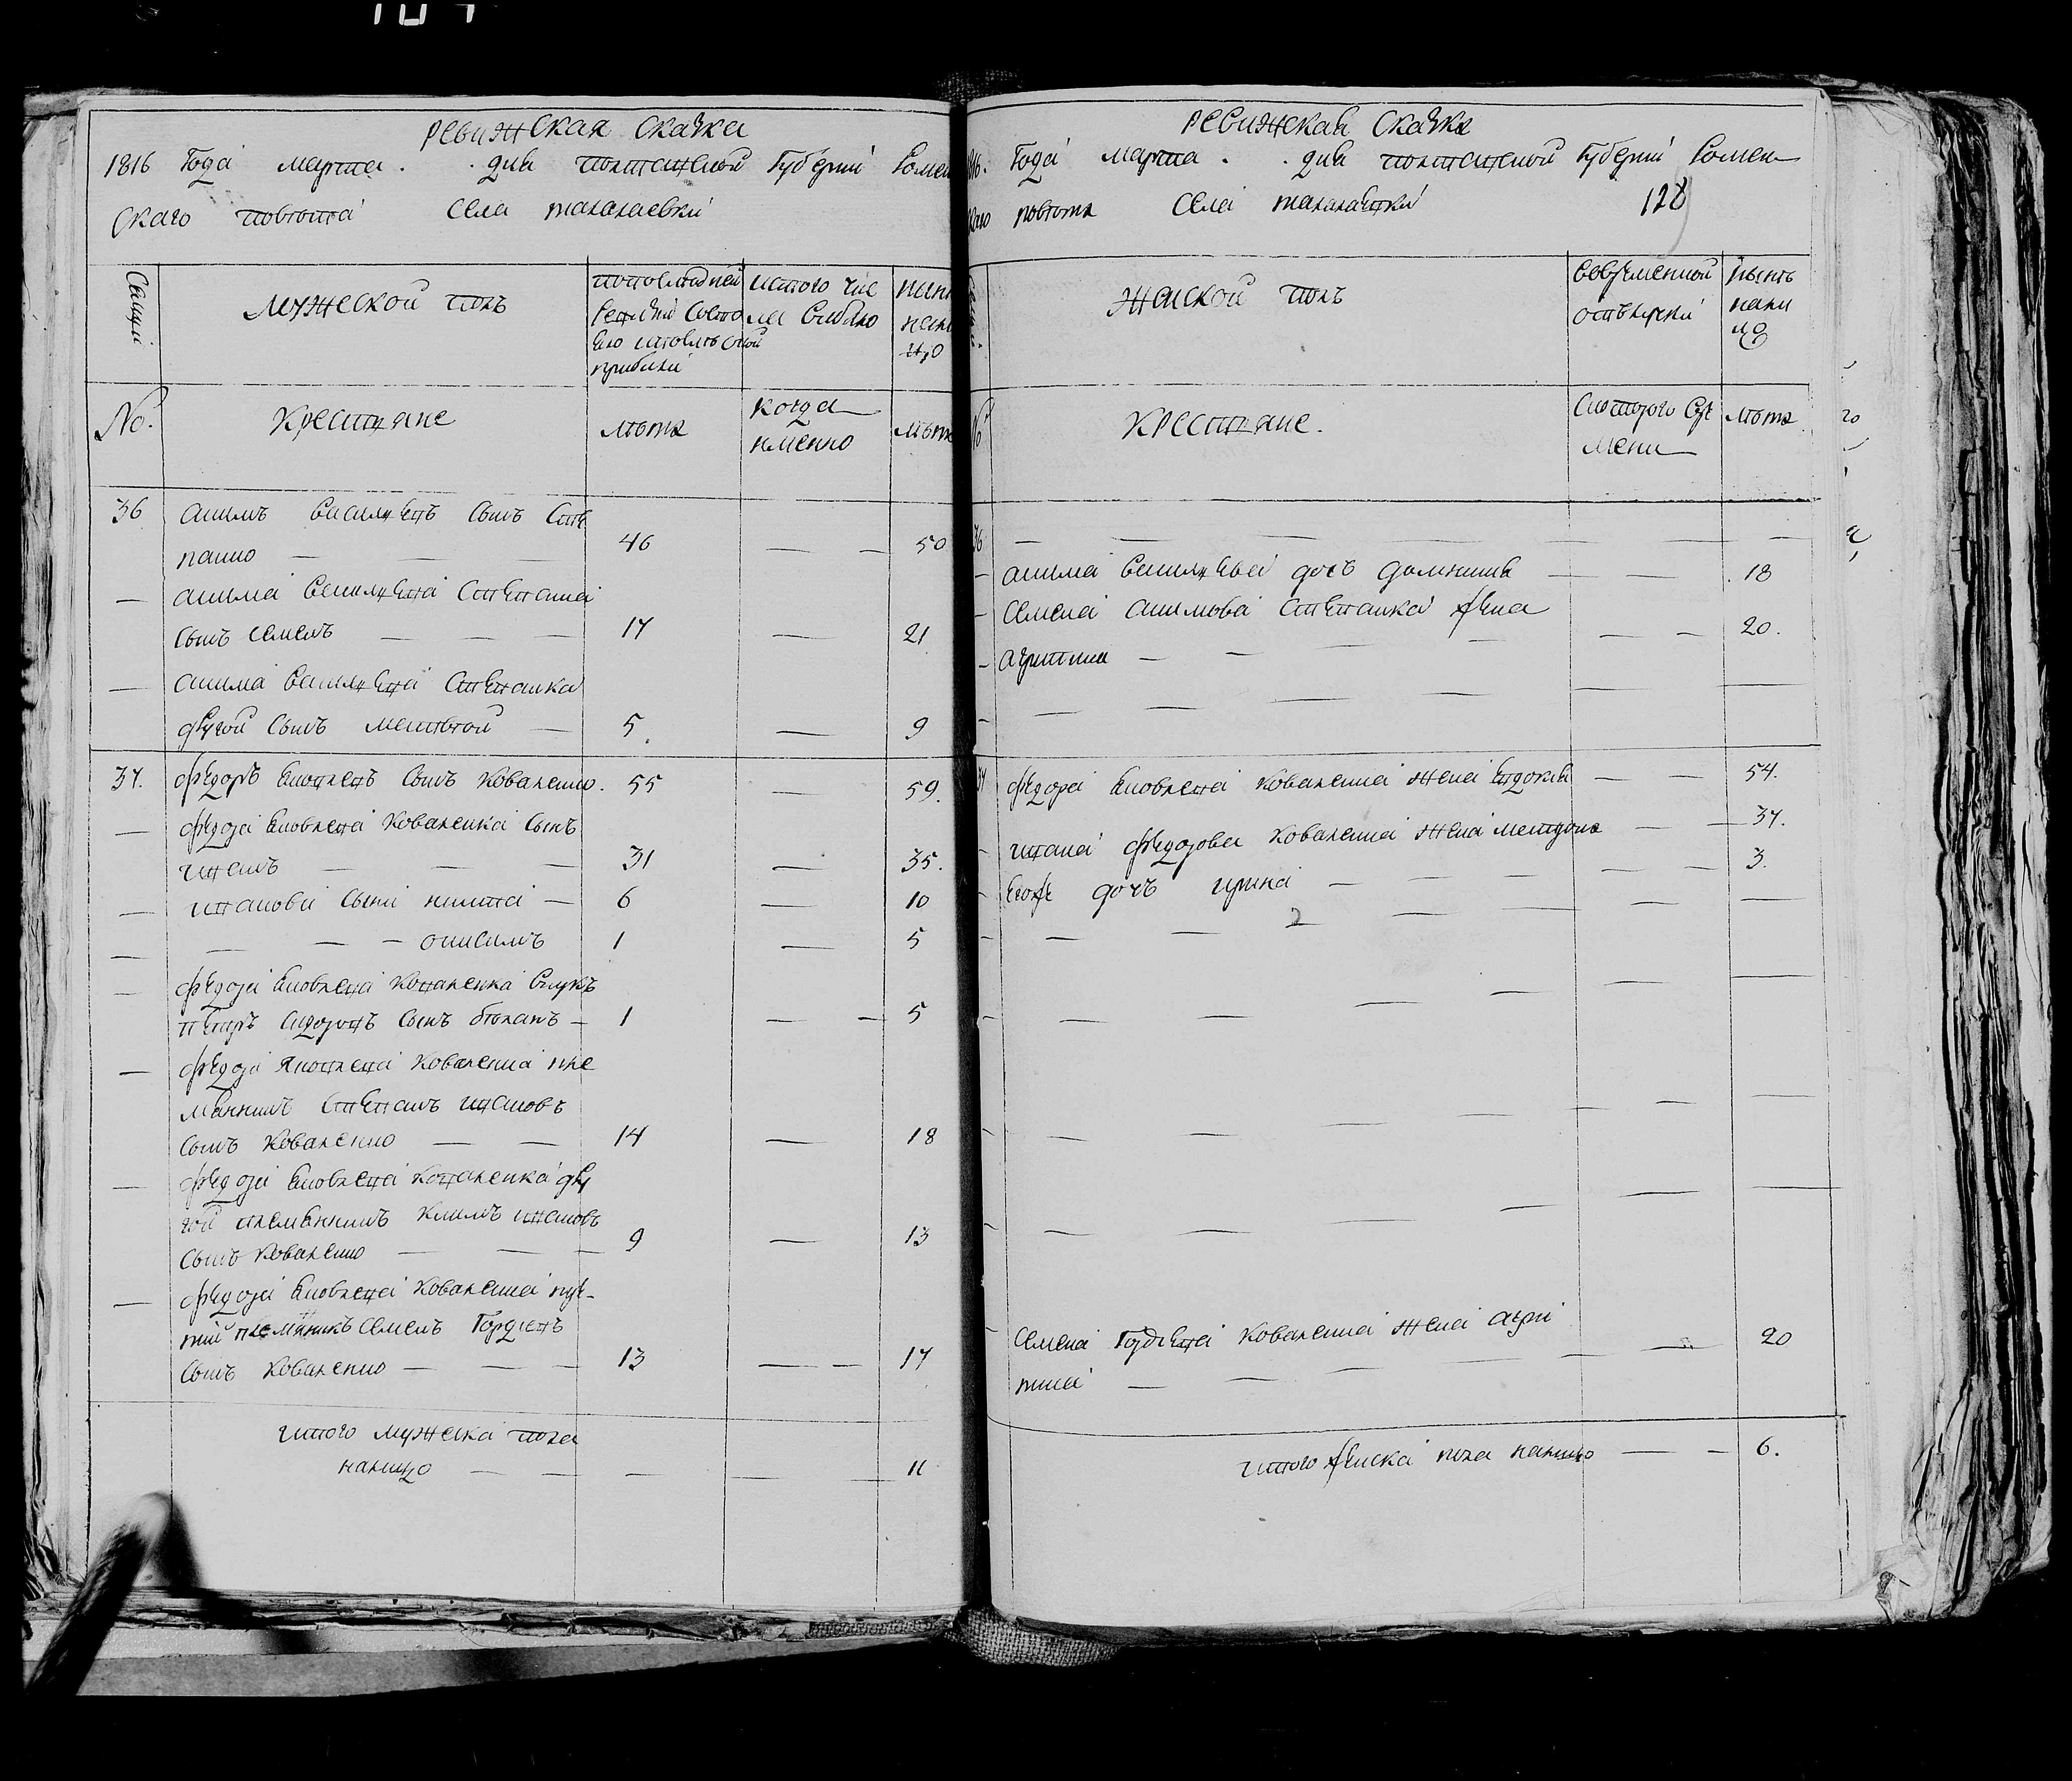 Ревижская сказка
1816 Года марта . . дня полтавской Губернии Ромен
скаго повета села талалаевки
Семьи
Мужеской полъ
попоследней
ревизии состо
яло и после оной
прибыли
истого чис
ла выбыло
ныне
нали
цо
No.
Крестяне
лета
когда
именно
лета
36 акимъ васильевъ сынъ Сте
панко — — — 46 — — 50
— акима васильева Степанка
сынъ семенъ — — — 17 — 21
— акима васильева Степанка
другой сынъ — 5. — 9
37. федоръ яковлевъ сынъ Коваленко. 55 — 59.
— федора яковлева Коваленка сынъ
иванъ — — — 31 — 35.
— иванови сыни никита — 6 — 10
— — — — онисимъ 1 — 5
— федора яковлева Коваленка внукъ
петръ сидоровъ сынъ — 1 — — 5
— федора яковлева Коваленка пле
мянникъ Степанъ ивановъ
сынъ Коваленко — — 14 — 18
— федора яковлева Коваленка дру
гой племянникъ климъ ивановъ
сынъ Коваленко — — — 9 — 13
— федора яковлева Коваленка тре-
тий племяникъ Семенъ Гордеевъ
сынъ Коваленко — — — 13 — — 17
итого мужеска пола
налицо — — — — 11
Ревижская сказка
1816. Года марта . . дня полтавской Губернии Ромен
скаго повета села талалаевки
128
Женской полъ
вовременной
отлучки
ныне
нали
цо
No
Крестяне.
скоторого вре
мени
лета
36 — — — — — — — —
— акима васильева дочъ домникия — — 18
— Семена акимова Степанка жена
— агрипина — — — — — 20.
— — — — — — —
37 федора яковлева Коваленка жена Евдокия — — 54.
— ивана федорова Коваленка жена — — 37.
— егоже дочъ ирина — — — — — 3.
2
— Семена Гордеева Коваленка жена агри
пина — — — — — 20
итого женска пола налицо — — 6.